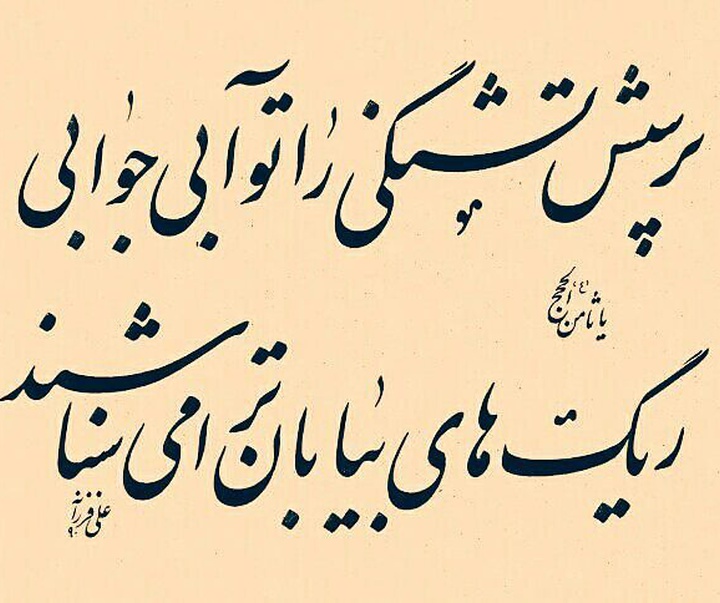 پرسش تشنگی را تو آبی جوابی
هو
یا ثامن الحجج (ع)
ریگ‌های بیابان ترا می‌شناسند
علی فرزانه
۹۰